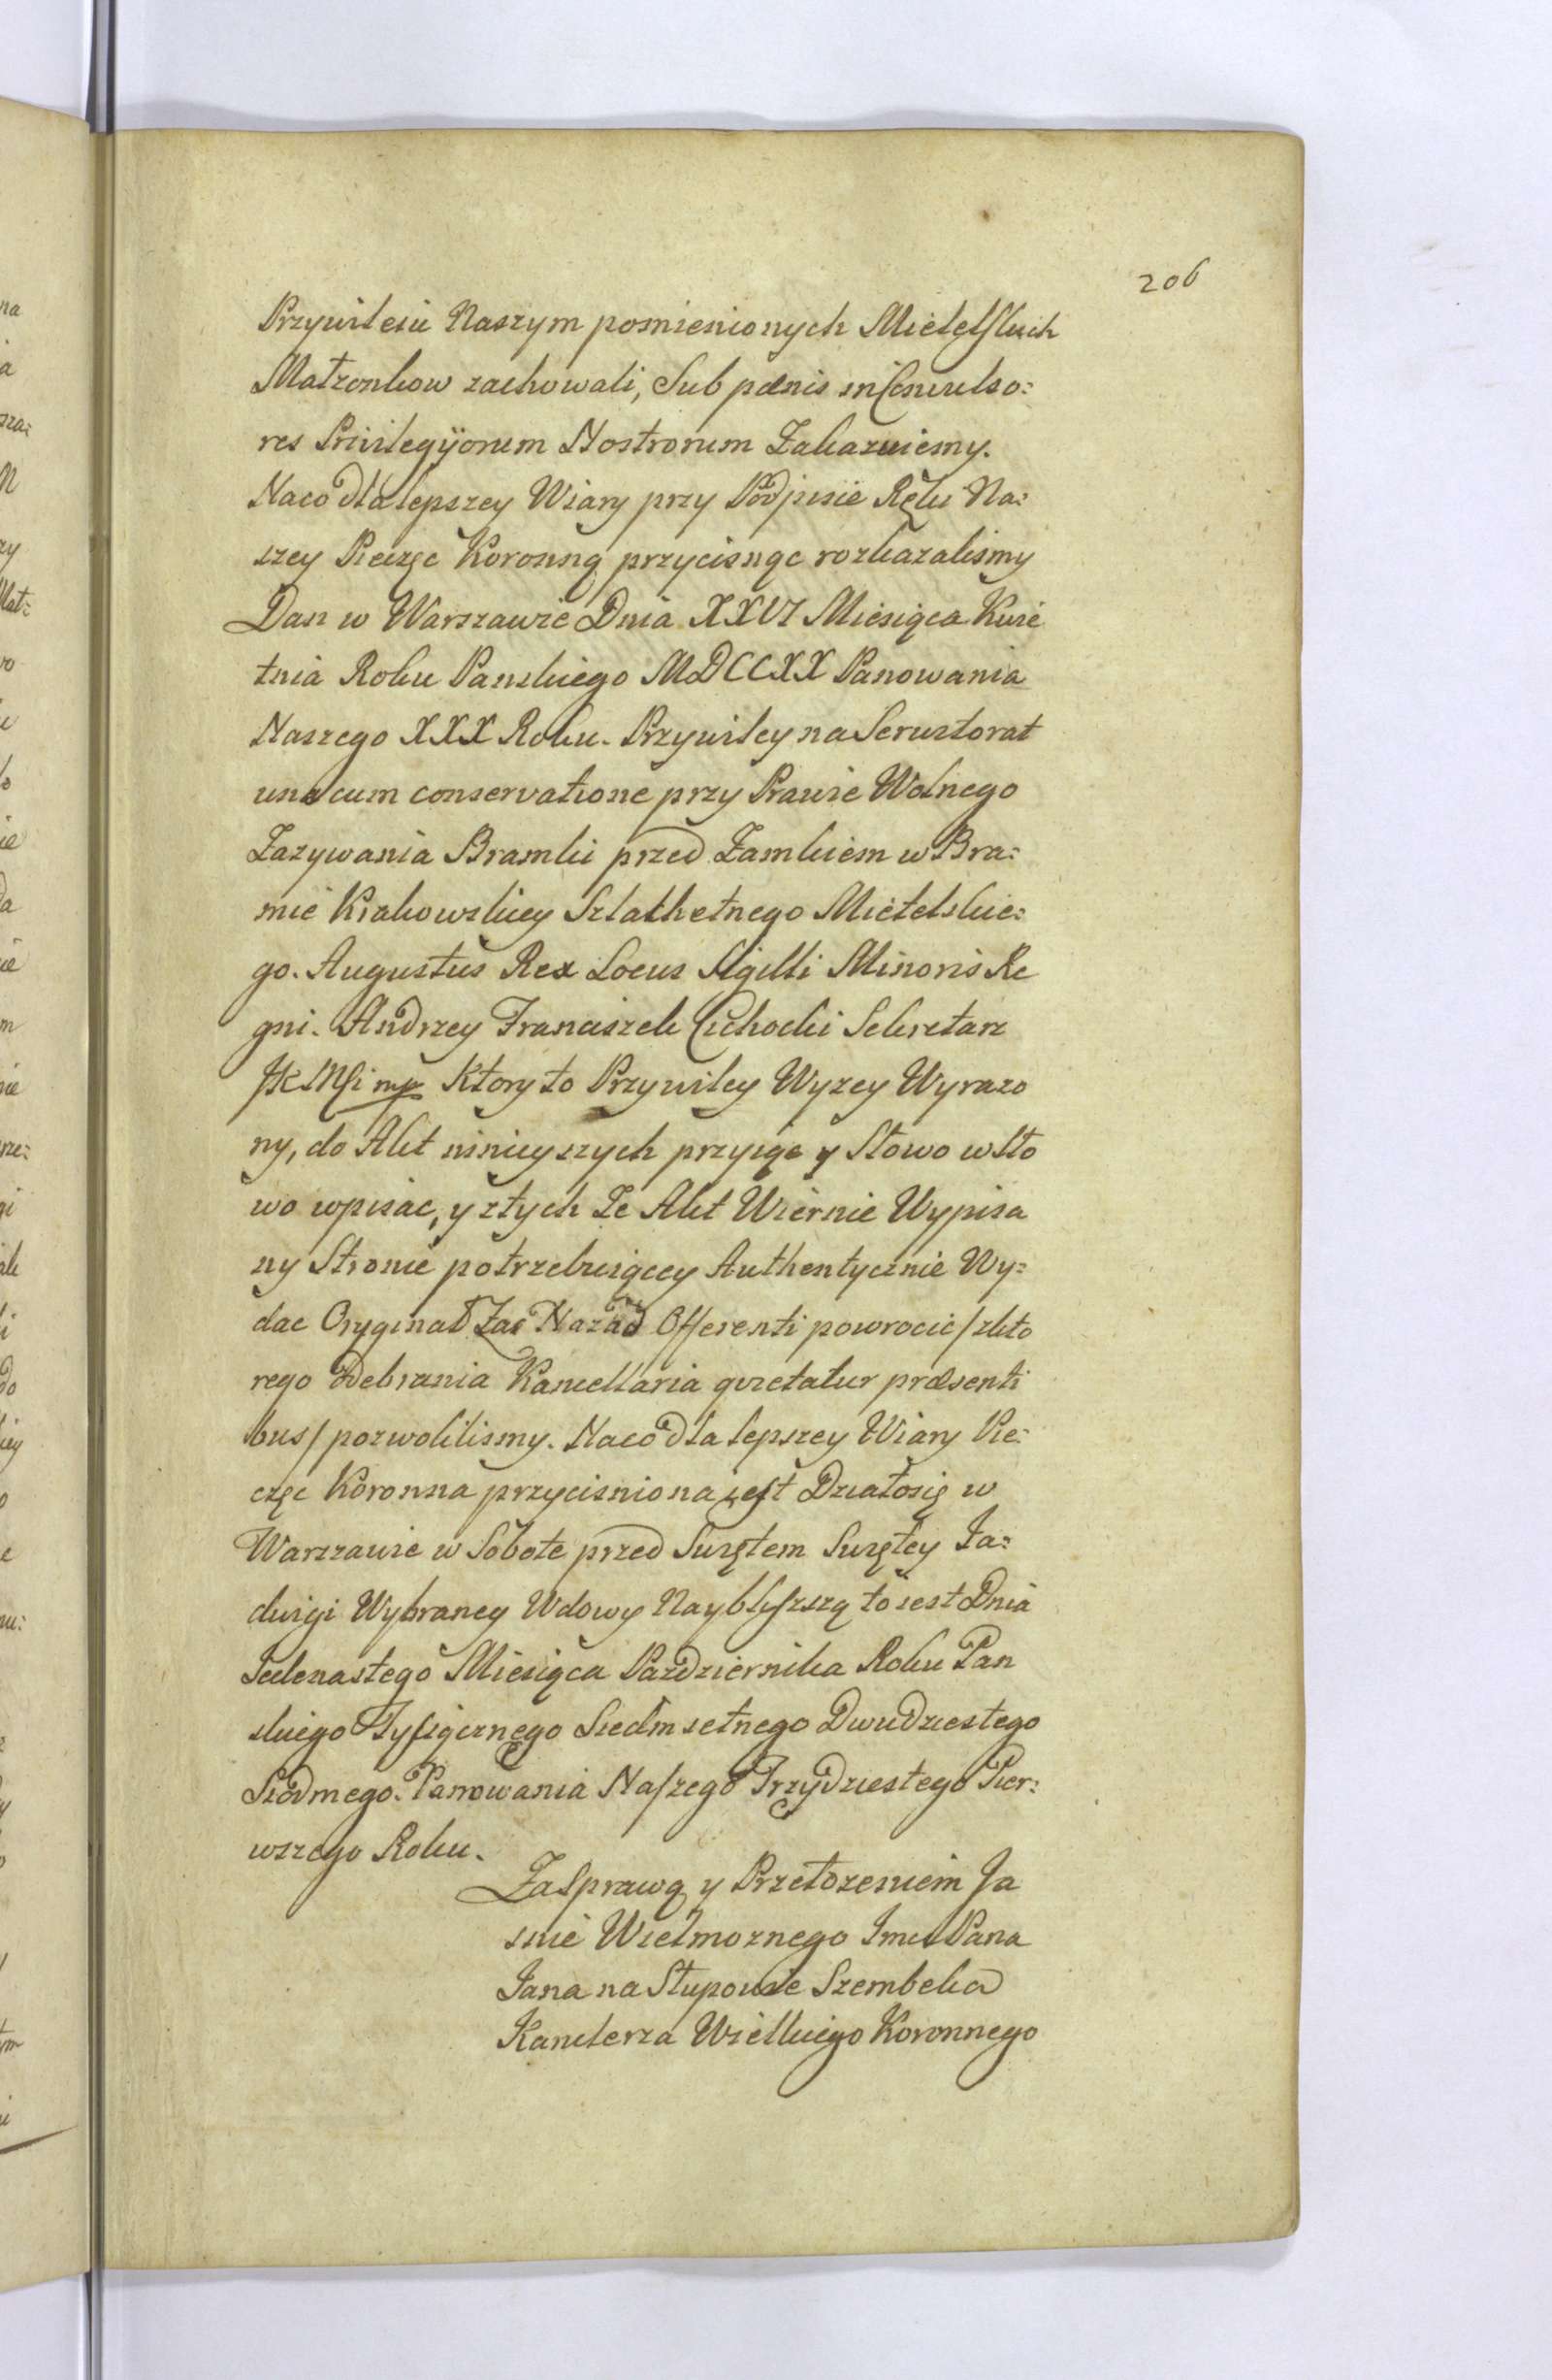 206
Przywileiu Naszym pomienionych Mietelskich
Małzonkow zachowali, Sub pænis in Convulso:
res Privilegÿorum Nostrorum Zakazuiemy.
Naco dla lepszey Wiary przy Podpisie Ręku Na:
szey Pieczęc Koronną przycisnąc rozkazalismy
Dan w Warszawie Dnia XXVI Miesiąca Kwie
tnia Roku Panskiego MDCCXX Panowania
Naszego XXX Roku. Przywiley na Serwitorat
una cum conservatione przy Prawie Wolnego
Zazywania Bramki przed Zamkiem w Bra:
mie Krakowskiey Szlachetnego Mietelskie:
go. Augustus Rex Locus Sigilli Minoris Re
gni. Andrzey Franciszek Cichocki Sekretarz
JKMSi mp Ktory to Przywiley Wyzey Wyrazo
ny, do Akt ninieyszych przyiąc y Słowo wsło
wo wpisac, y ztych Ze Akt Wiernie Wypisa
ny Stronie potrzebuiącey Authentycznie Wy:
dac Oryginał Zas Nazad Offerenti powrocic/zkto
rego odebrania Kancellaria quietatur præsenti
bus/ pozwolilismy. Naco dla lepszey Wiary Pie:
częc Koronna przycisniona iest Działosię w
Warszawie w Sobote przed Swiętem Swiętey Ja:
dwigi Wybraney Wdowy Nayblyszszą to iest Dnia
Jedenastego Miesiąca Pazdziernika Roku Pan
skiego Tysiącznego Siedmsetnego Dwudziestego
Siodmego. Panowania Naszego Trzydziestego Pier:
wszego Roku.
Zasprawą y Przełozeniem Ja
snie Wielmoznego Imci Pana
Jana na Słupowie Szembeka
Kanclerza Wielkiego Koronnego